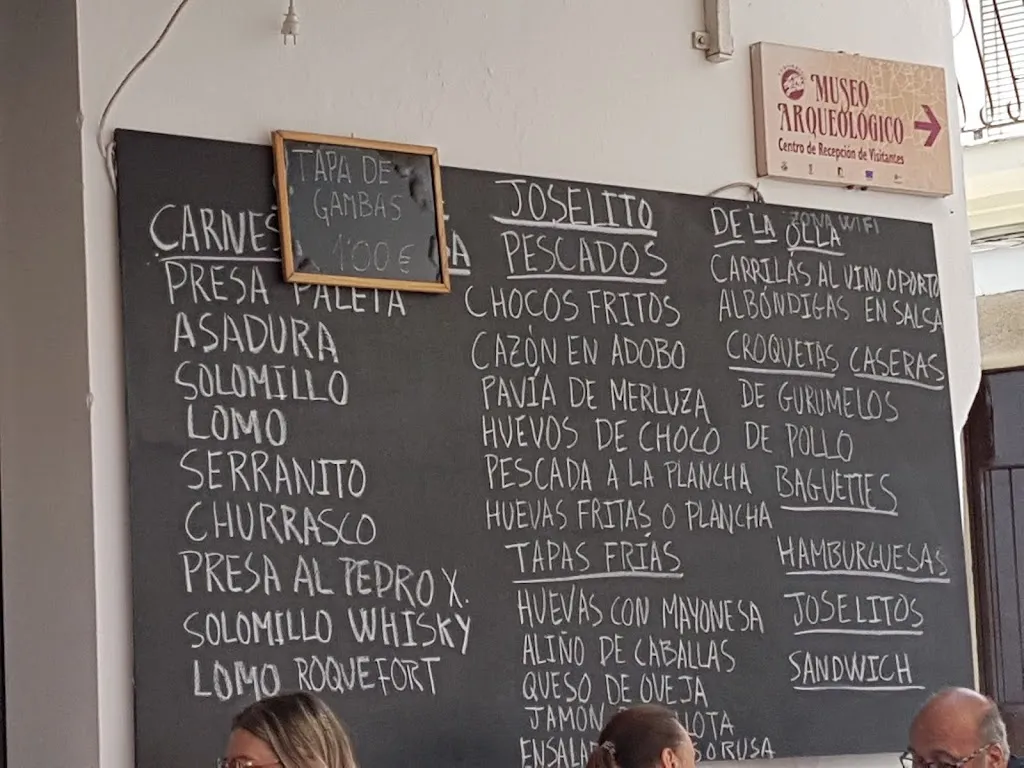 MUSEO
ARQUEOLÓGICO
Centro de Recepción de Visitantes
TAPA DE
GAMBAS
1'00 €
CARNES
PRESA PALETA
ASADURA
SOLOMILLO
LOMO
SERRANITO
CHURRASCO
PRESA AL PEDRO X.
SOLOMILLO WHISKY
LOMO ROQUEFORT
JOSELITO
PESCADOS
CHOCOS FRITOS
CAZÓN EN ADOBO
PAVÍA DE MERLUZA
HUEVOS DE CHOCO
PESCADA A LA PLANCHA
HUEVAS FRITAS O PLANCHA
TAPAS FRÍAS
HUEVAS CON MAYONESA
ALIÑO DE CABALLAS
QUESO DE OVEJA
JAMON
ZONA WIFI
DE LA OLLA
CARRILAS AL VINO OPORTO
ALBÓNDIGAS EN SALSA
CROQUETAS CASERAS
DE GURUMELOS
DE POLLO
BAGUETTES
HAMBURGUESAS
JOSELITOS
SANDWICH